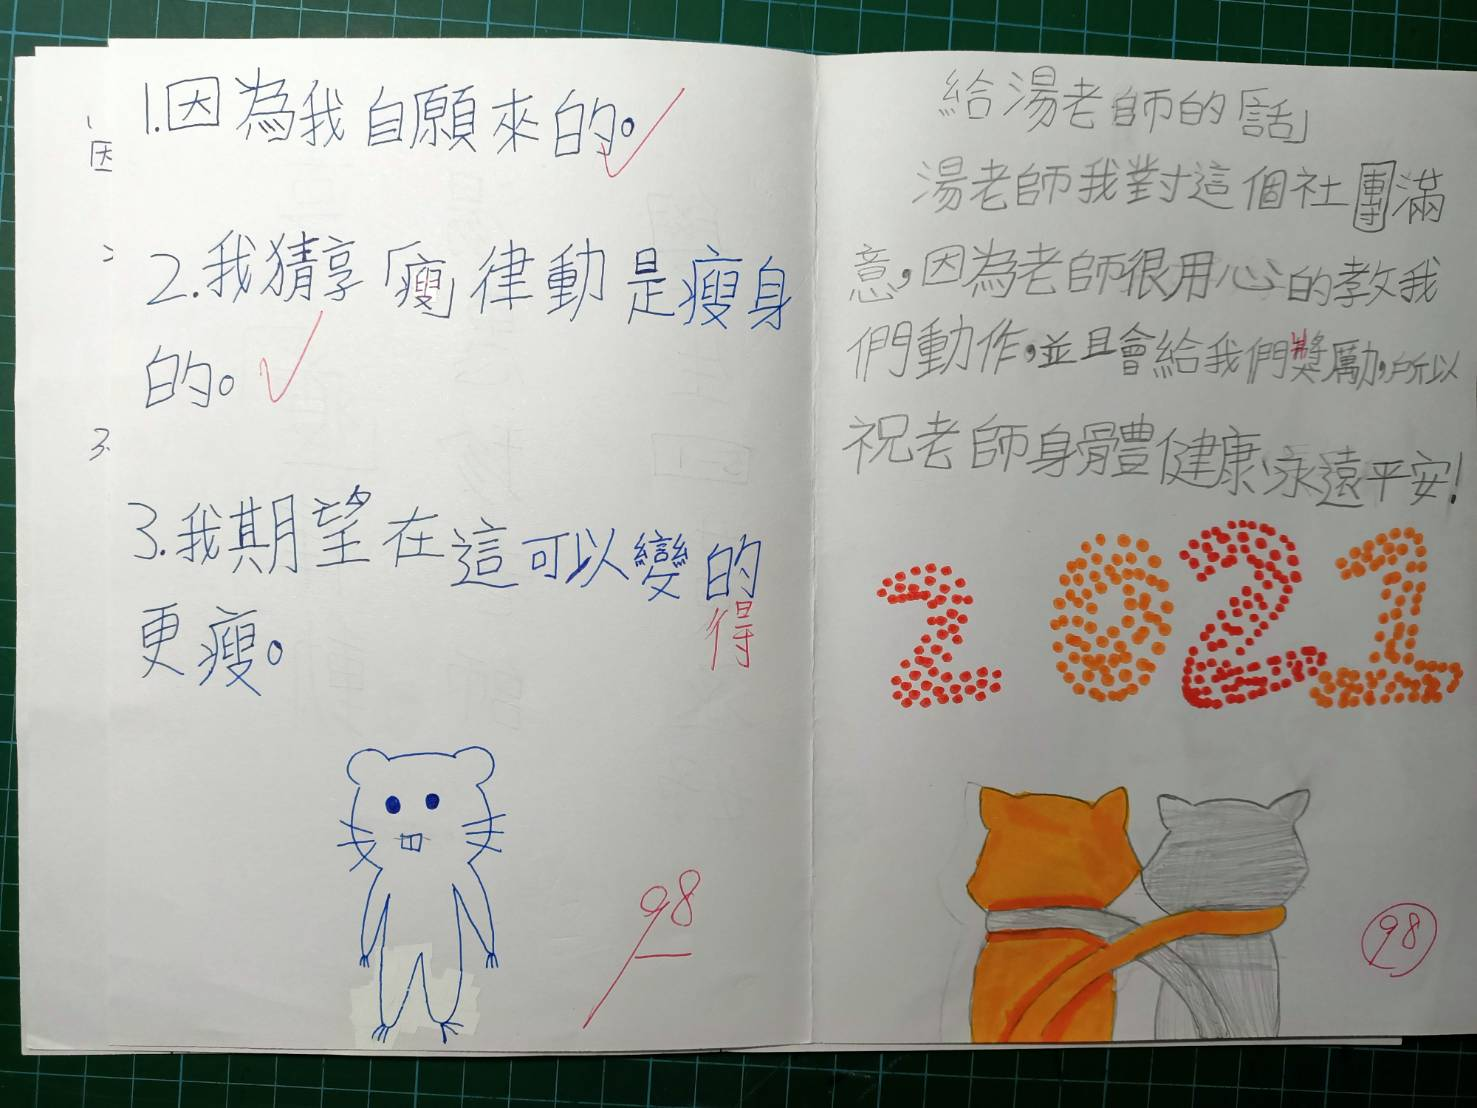 1.因為我自願來的。
2.我猜享「瘦」律動是瘦身
的。
3.我期望在這可以變的
得
更瘦。
98
因
3.
給湯老師的「話」
湯老師我對這個社團滿
意,因為老師很用心的教我
們動作,並且會給我們獎勵,所以
祝老師身體健康、永遠平安!
2021
98